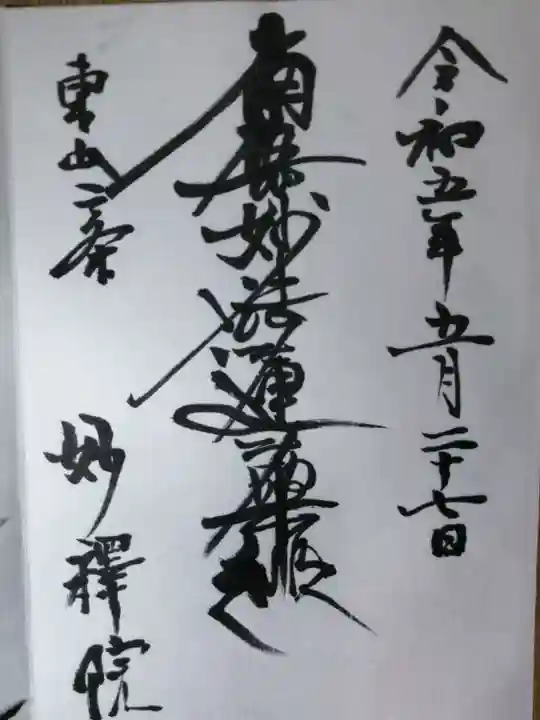 令和五年五月二十七日
南無妙法蓮華経
東山二条
妙禪院